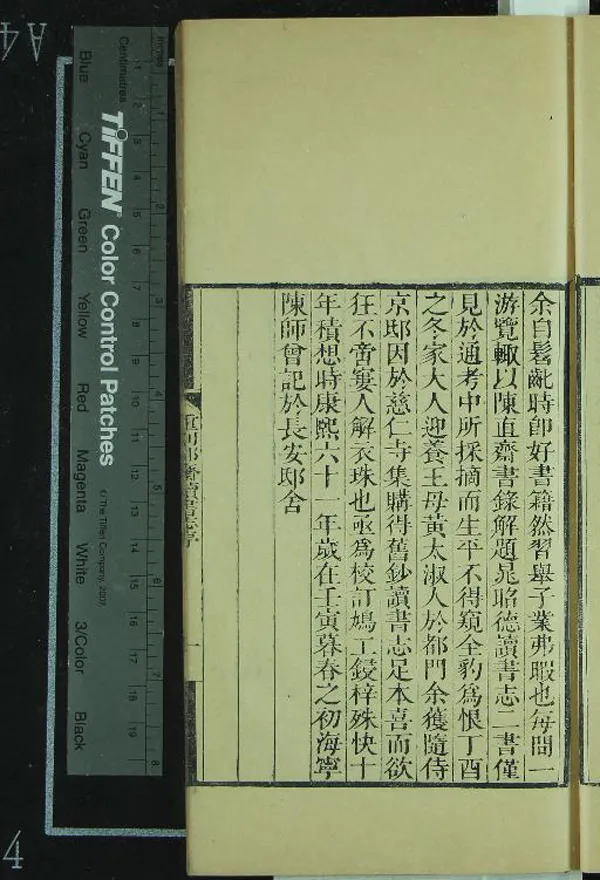 余自髫齔時卽好書籍然習舉子業弗暇也每問一
游覽輙以陳直齋書錄解題晁昭德讀書志二書僅
見於通考中所採摘而生平不得窺全豹爲恨丁酉
之冬家大人迎養王母黃太淑人於都門余獲隨侍
京邸因於慈仁寺集購得舊鈔讀書志足本喜而欲
狂不啻窶人解衣珠也亟爲校訂鳩工鋟梓殊快十
年積想時康熙六十一年歲在壬寅暮春之初海寧
陳師曾記於長安邸舍
重刊郡齋讀書志序
一
Inches
Centimetres
1 2 3 4 5 6 7 8
1 2 3 4 5 6 7 8 9 10 11 12 13 14 15 16 17 18 19
TIFFEN® Color Control Patches
© The Tiffen Company, 2007
Blue Cyan Green Yellow Red Magenta White 3/Color Black
A4
4